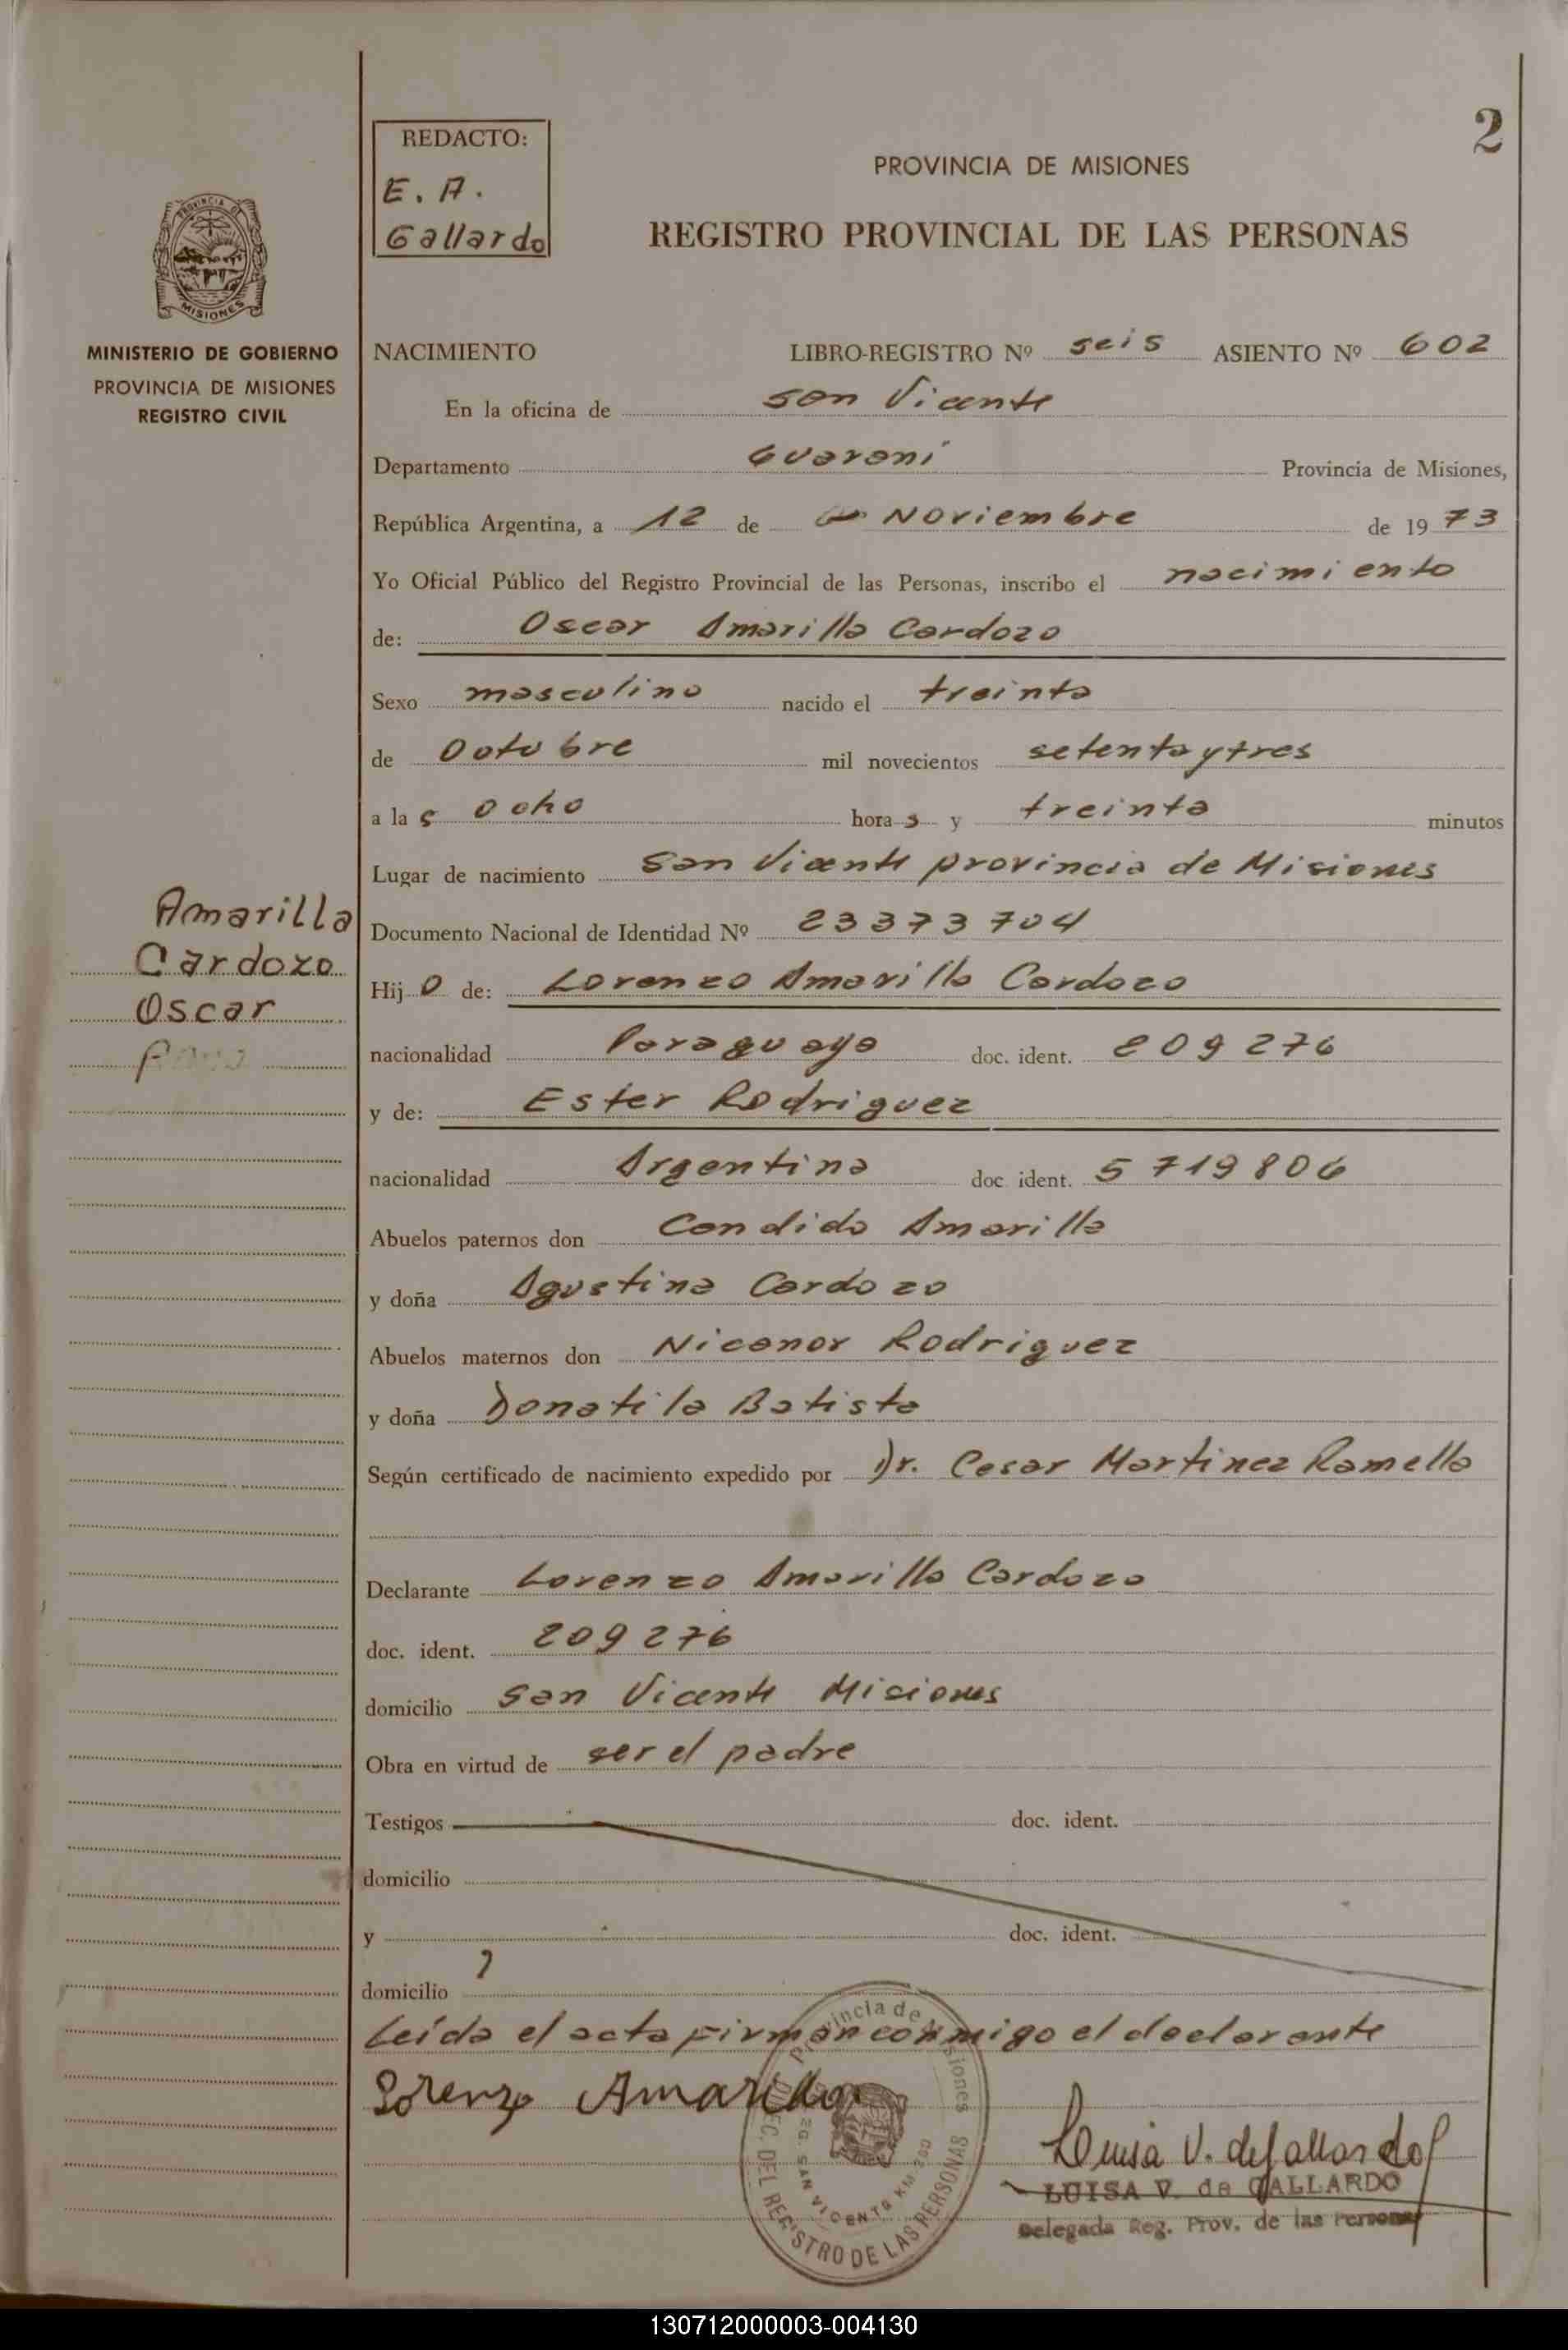 2
REDACTO:
E. A.
Gallardo
PROVINCIA DE MISIONES
REGISTRO PROVINCIAL DE LAS PERSONAS
PROVINCIA DE
MISIONES
MINISTERIO DE GOBIERNO
PROVINCIA DE MISIONES
REGISTRO CIVIL
NACIMIENTO LIBRO-REGISTRO Nº seis ASIENTO Nº 602
En la oficina de San Vicente
Departamento Guarani Provincia de Misiones,
República Argentina, a 12 de Noviembre de 1973
Yo Oficial Público del Registro Provincial de las Personas, inscribo el nacimiento
de: Oscar Amarilla Cardozo
Sexo masculino nacido el treinta
de Octubre mil novecientos setenta y tres
a las ocho horas y treinta minutos
Lugar de nacimiento San Vicente provincia de Misiones
Amarilla
Cardozo
Oscar
Documento Nacional de Identidad Nº 23373704
Hijo de: Lorenzo Amarilla Cardozo
nacionalidad Paraguaya doc. ident. 209276
y de: Ester Rodriguez
nacionalidad Argentina doc. ident. 5719806
Abuelos paternos don Candido Amarilla
y doña Agustina Cardozo
Abuelos maternos don Nicanor Rodriguez
y doña Donatila Batista
Según certificado de nacimiento expedido por Dr. Cesar Martinez Ramella
Declarante Lorenzo Amarilla Cardozo
doc. ident. 209276
domicilio San Vicente Misiones
Obra en virtud de ser el padre
Testigos doc. ident.
domicilio
y doc. ident.
domicilio
Leida el acta firman conmigo el declarante
Lorenzo Amarilla
Provincia de Misiones
DEL REGISTRO DE LAS PERSONAS
SAN VICENTE KM
Luisa V. de Gallardo
LUISA V. de GALLARDO
Delegada Reg. Prov. de las Personas
130712000003-004130